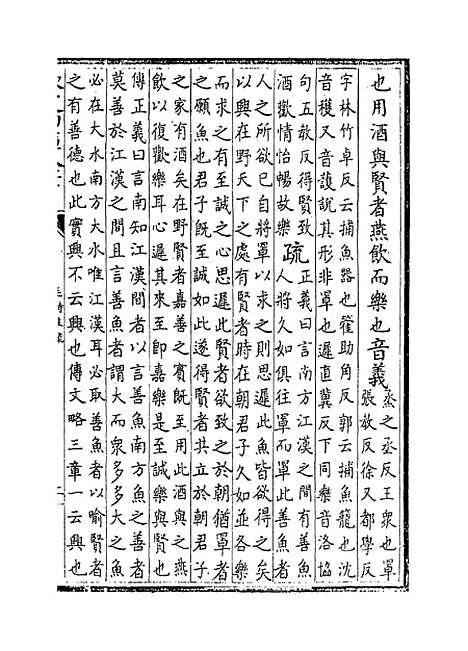 也用酒與賢者燕飲而樂也音義烝之丞反王衆也罩
張放反徐又都學反
字林竹卓反云捕魚器也籗助角反郭云捕魚籠也沈
音穫又音護說其形非罩也遲直冀反下同樂音洛協
句五放反得賢致
酒歡情怡暢故樂疏正義曰言南方江漢之間有善魚
人將久如俱往罩而罩此善魚者
人之所欲巳自將罩以求之則思遲此魚皆欲得之矣
以興在野天下之處有賢者時在朝君子久如並各樂
而求之有至誠之心思遲此賢者欲致之於朝猶江漢
之願魚也君子既至誠如此遂得賢者共立於朝君子
之家有酒矣在野賢者嘉善之賓既至用此酒與之燕
飲以復歡樂耳心遲其來至即嘉樂是至誠樂與賢也
傳正義曰言南知江漢間者以言善魚南方魚之善者
莫善於江漢之間且言善魚者謂大而衆多多大之魚
必在大水南方大水唯江漢耳必取善魚者以喻賢者
之有善德也此實興不云興也傳文略三章一云興也